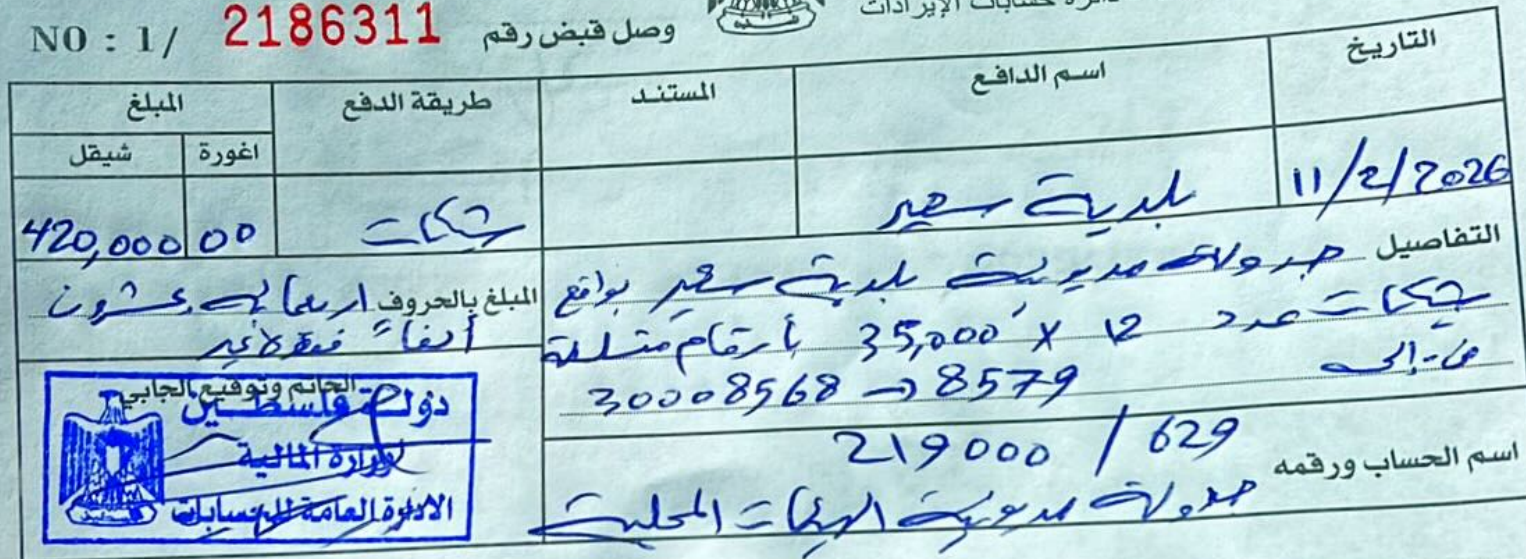 دائرة حسابات الإيرادات
وصل قبض رقم 2186311 NO : 1/
التاريخ اسم الدافع المستند طريقة الدفع المبلغ
اغورة شيقل
11/2/2026 بلدية سعير شيكات 00 420,000
التفاصيل جدولة مديونية بلدية سعير بواقع
شيكات عدد 12 X 35,000 بأرقام متسلسلة
من - إلى
30008568 → 8579
المبلغ بالحروف اربعمائة وعشرون
ألفاً فقط لاغير
الخاتم وتوقيع الجابي
دولة فلسطين
وزارة المالية
الادارة العامة للحسابات
اسم الحساب ورقمه 219000 / 629
جدولة مديونية الهيئات المحلية